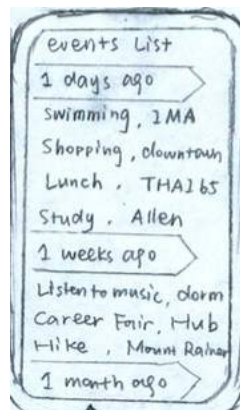 events List
1 days ago
Swimming, IMA
Shopping, downtown
Lunch, THAI 65
Study, Allen
1 weeks ago
Listen to music, dorm
Career Fair, Hub
Hike, Mount Rainer
1 month ago